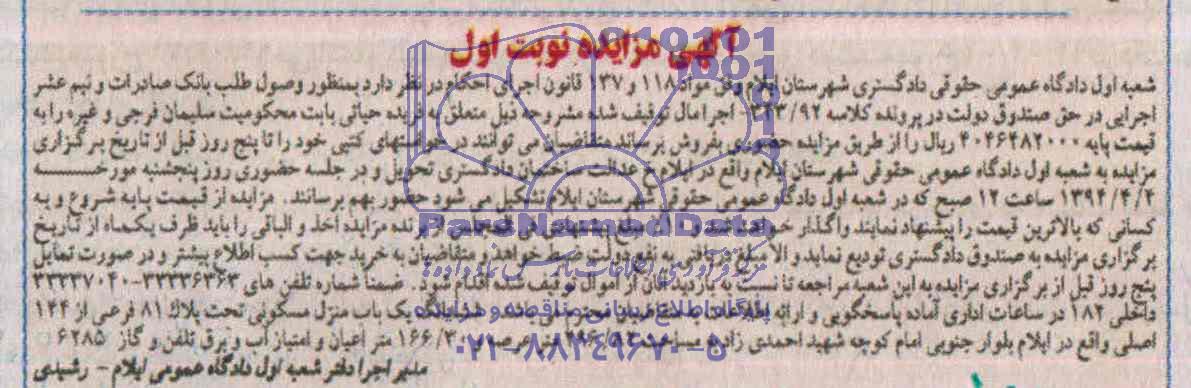 آگهی مزایده نوبت اول
شعبه اول دادگاه عمومی حقوقی دادگستری شهرستان ایلام وفق مواد ۱۱۸ و ۱۳۷ قانون اجرای احکام در نظر دارد بمنظور وصول طلب بانک صادرات و نیم عشر
اجرایی در حق صندوق دولت در پرونده کلاسه اجرا مال توقیف شده مشروحه ذیل متعلق به فریده حیاتی بابت محکومیت سلیمان فرجی و غیره را به
قیمت پایه ۴۰۴۶۴۸۲۰۰۰ ریال را از طریق مزایده حضوری بفروش برساند. متقاضیان می توانند درخواستهای کتبی خود را تا پنج روز قبل از تاریخ برگزاری
مزایده به شعبه اول دادگاه عمومی حقوقی شهرستان ایلام واقع در ایلام خ عدالت ساختمان دادگستری تحویل و در جلسه حضوری روز پنجشنبه مورخـــــه
۱۳۹۴/۴/۴ ساعت ۱۲ صبح که در شعبه اول دادگاه عمومی حقوقی شهرستان ایلام تشکیل می شود حضور بهم برسانند. مزایده از قیمت پایه شروع و به
کسانی که بالاترین قیمت را پیشنهاد نمایند واگذار خواهد شد و مبلغ پیشنهادی فی المجلس از برنده مزایده اخذ و الباقی را باید ظرف یکماه از تاریخ
برگزاری مزایده به صندوق دادگستری تودیع نماید و الا مبلغ دریافتی به نفع دولت ضبط خواهد و متقاضیان به خرید جهت کسب اطلاع بیشتر و در صورت تمایل
پنج روز قبل از برگزاری مزایده به این شعبه مراجعه تا نسبت به بازدید آنان از اموال توقیف شده اقدام شود. ضمنا شماره تلفن های ۳۳۳۳۶۳۶۳-۳۳۳۳۷۰۴۰
داخلی ۱۸۲ در ساعات اداری آماده پاسخگویی و ارائه ششدانگ یک باب منزل مسکونی تحت پلاک ۸۱ فرعی از ۱۴۴
اصلی واقع در ایلام بلوار جنوبی امام کوچه شهید احمدی زاده به مساحت عرصه و ۱۶۶/۳۰ متر اعیان و امتیاز آب و برق تلفن و گاز ۶۲۸۵
مدیر اجرا دفتر شعبه اول دادگاه عمومی ایلام - رشیدی
ParsNamadData
پایگاه اطلاع رسانی مناقصه و مزایده
۰۲۱-۸۸۳۴۹۶۷۰-۵